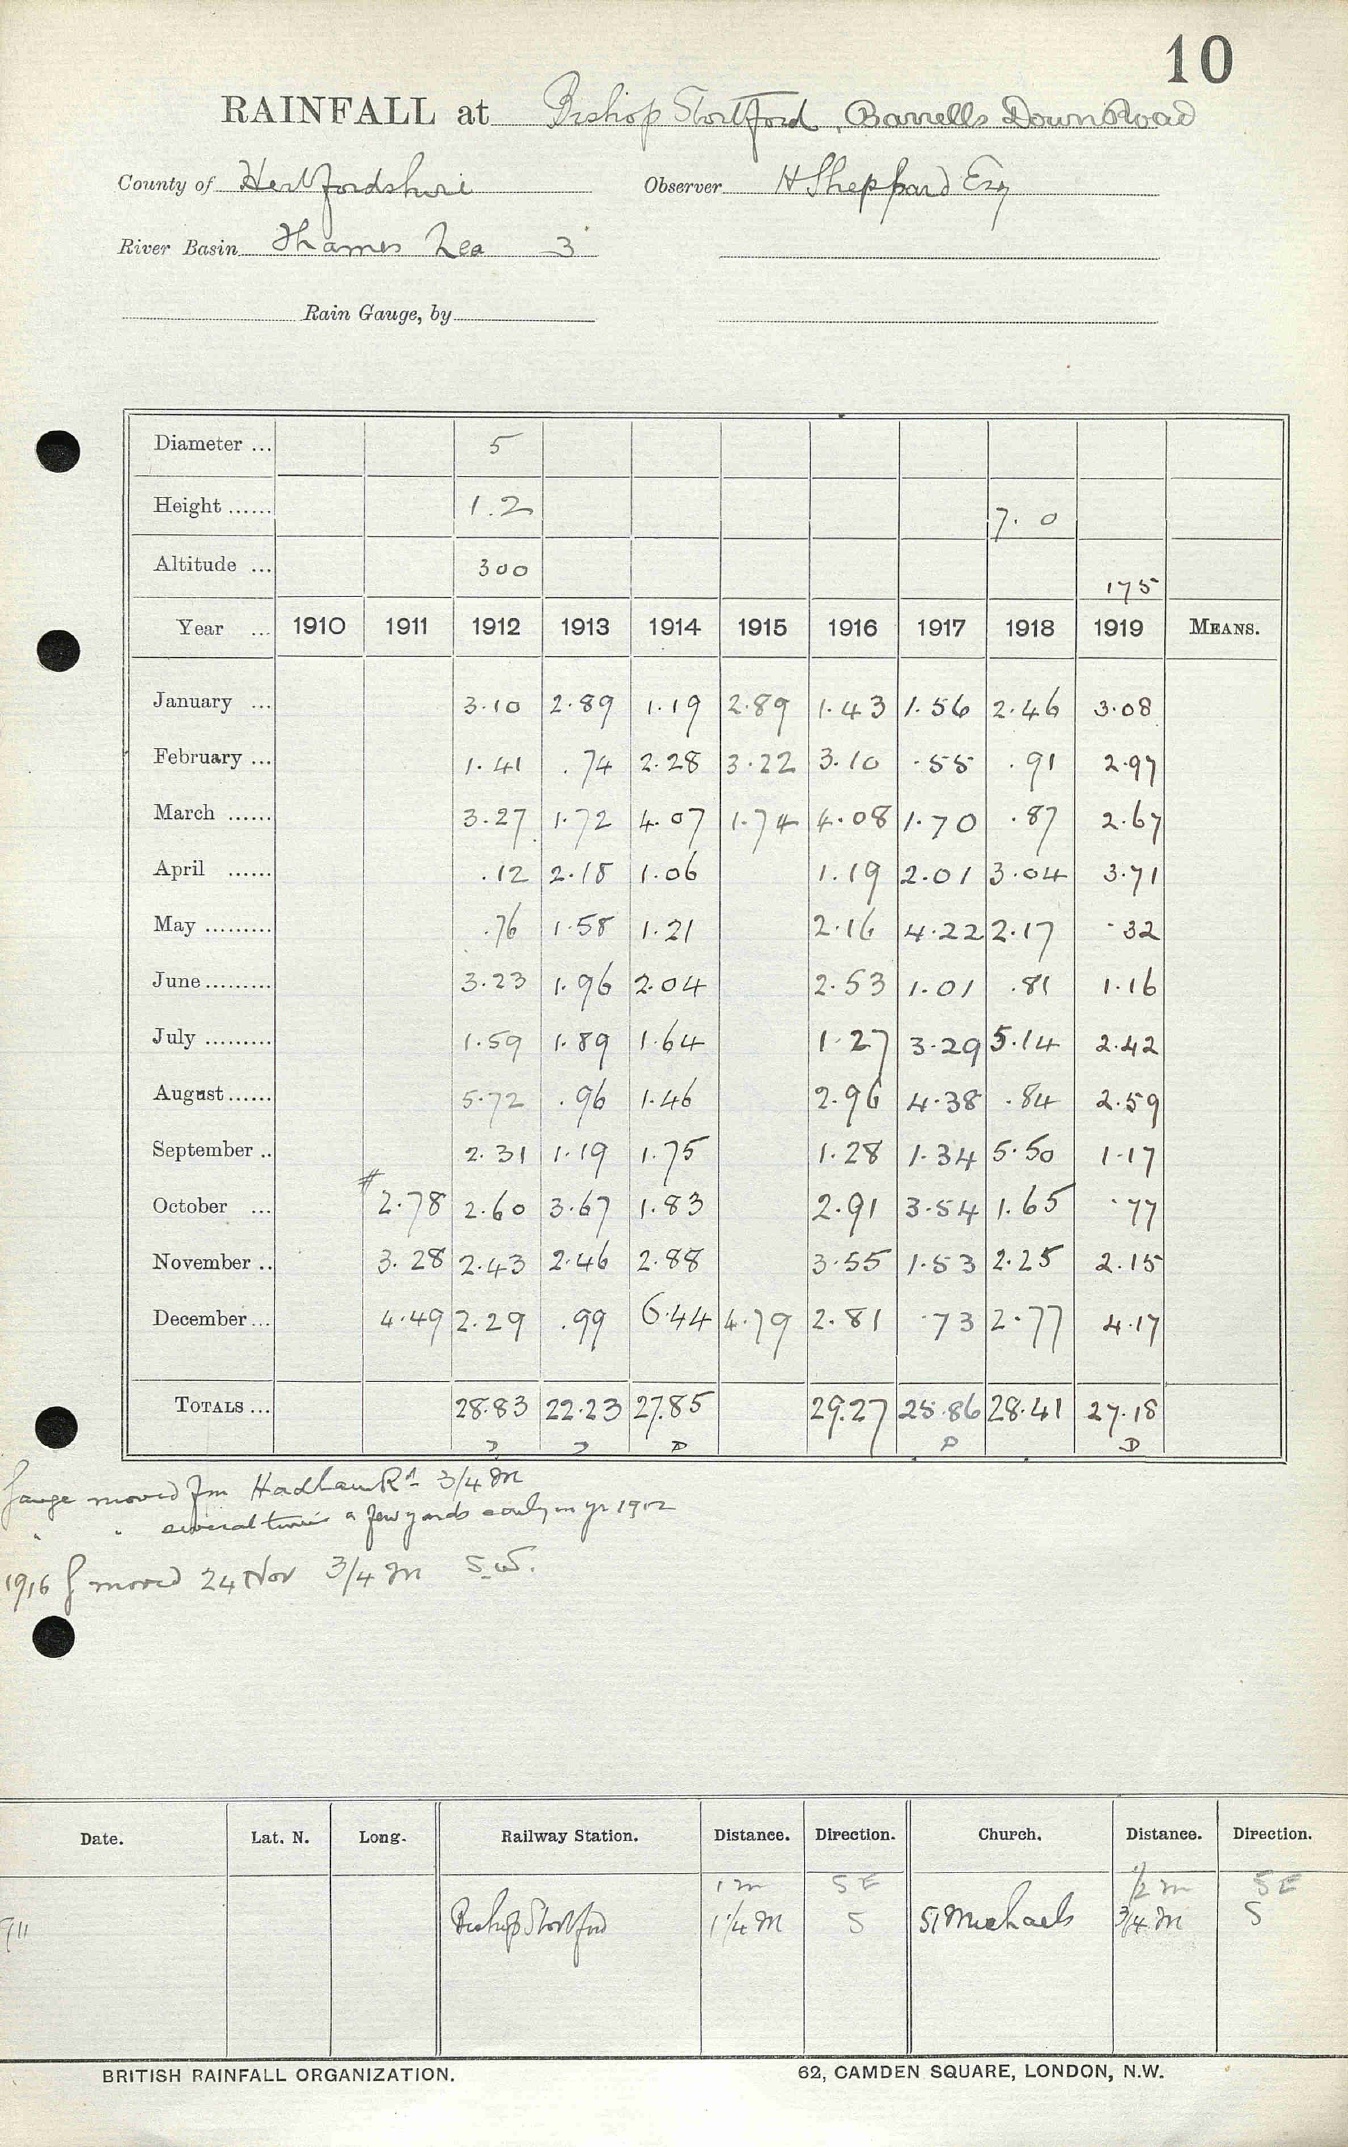 10
RAINFALL at Bishop Stortford, Barrells Down Road
County of Hertfordshire Observer H Sheppard Esq
River Basin Thames Lea 3
Rain Gauge, by
Diameter ... 5
Height ...... 1.2 7.0
Altitude ... 300 175
Year ... 1910 1911 1912 1913 1914 1915 1916 1917 1918 1919 MEANS.
January ... 3.10 2.89 1.19 2.89 1.43 1.56 2.46 3.08
February ... 1.41 .74 2.28 3.22 3.10 .55 .91 2.97
March ...... 3.27 1.72 4.07 1.74 4.08 1.70 .87 2.67
April ...... .12 2.18 1.06 1.19 2.01 3.04 3.71
May ......... .76 1.58 1.21 2.16 4.22 2.17 .32
June ......... 3.23 1.96 2.04 2.53 1.01 .81 1.16
July ......... 1.59 1.89 1.64 1.27 3.29 5.14 2.42
August ...... 5.72 .96 1.46 2.96 4.38 .84 2.59
September .. 2.31 1.19 1.75 1.28 1.34 5.50 1.17
October ... #2.78 2.60 3.67 1.83 2.91 3.54 1.65 .77
November .. 3.28 2.43 2.46 2.88 3.55 1.53 2.25 2.15
December ... 4.49 2.29 .99 6.44 4.79 2.81 .73 2.77 4.17
TOTALS ... 28.83 22.23 27.85 29.27 25.86 28.41 27.18
D D D D D
Gauge moved fm Hadham Rd 3/4 M
" " several times a few yards early in yr 1912
1916 G moved 24 Nov 3/4 M S.W.
Date. Lat. N. Long. Railway Station. Distance. Direction. Church. Distance. Direction.
1 m SE 1/2 m SE
911 Bishop Stortford 1 1/4 M S St Michaels 3/4 M S
BRITISH RAINFALL ORGANIZATION. 62, CAMDEN SQUARE, LONDON, N.W.